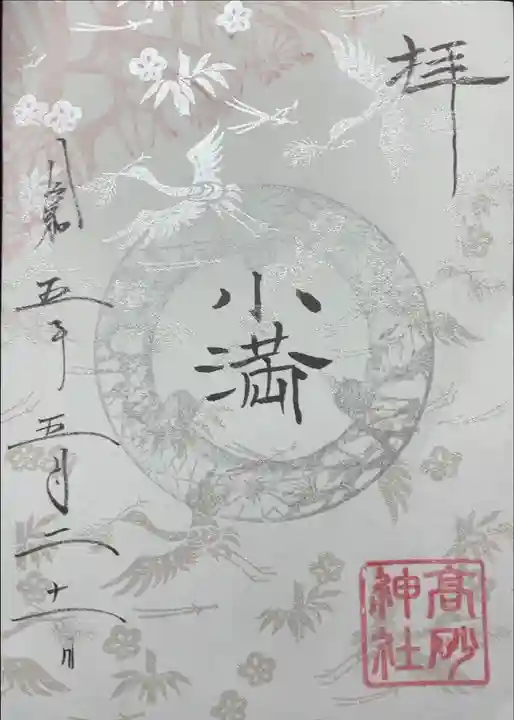 拝
小満
五年五月二十一日
高砂
神社